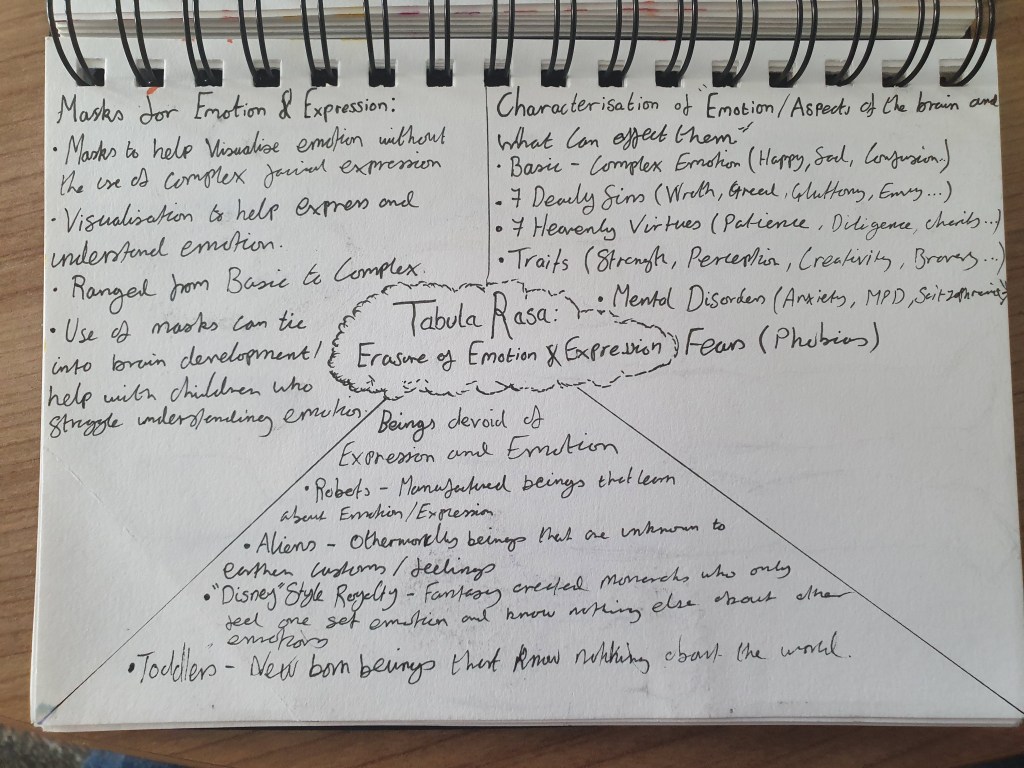 Masks for Emotion & Expression:
• Masks to help Visualise emotion without
the use of complex facial expression
• Visualisation to help express and
understand emotion.
• Ranged from Basic to Complex.
• Use of masks can tie
into brain development/
help with children who
struggle understanding emotion.
Characterisation of "Emotion/Aspects of the brain and
what can effect them"
• Basic - Complex Emotion (Happy, Sad, Confusion..)
• 7 Deadly Sins (Wrath, Greed, Gluttony, Envy...)
• 7 Heavenly Virtues (Patience, Diligence, charity...)
• Traits (Strength, Perception, Creativity, Bravery...)
• Mental Disorders (Anxiety, MPD,
Fears (Phobias)
Tabula Rasa:
Erasure of Emotion & Expression
Beings devoid of
Expression and Emotion
• Robots - Manufactured beings that learn
about Emotion/Expression
• Aliens - Otherworldly beings that are unknown to
earthen customs/feelings
• "Disney" Style Royalty - Fantasy created monarchs who only
feel one set emotion and know nothing else about other
emotions
• Toddlers - New born beings that know nothing about the world.